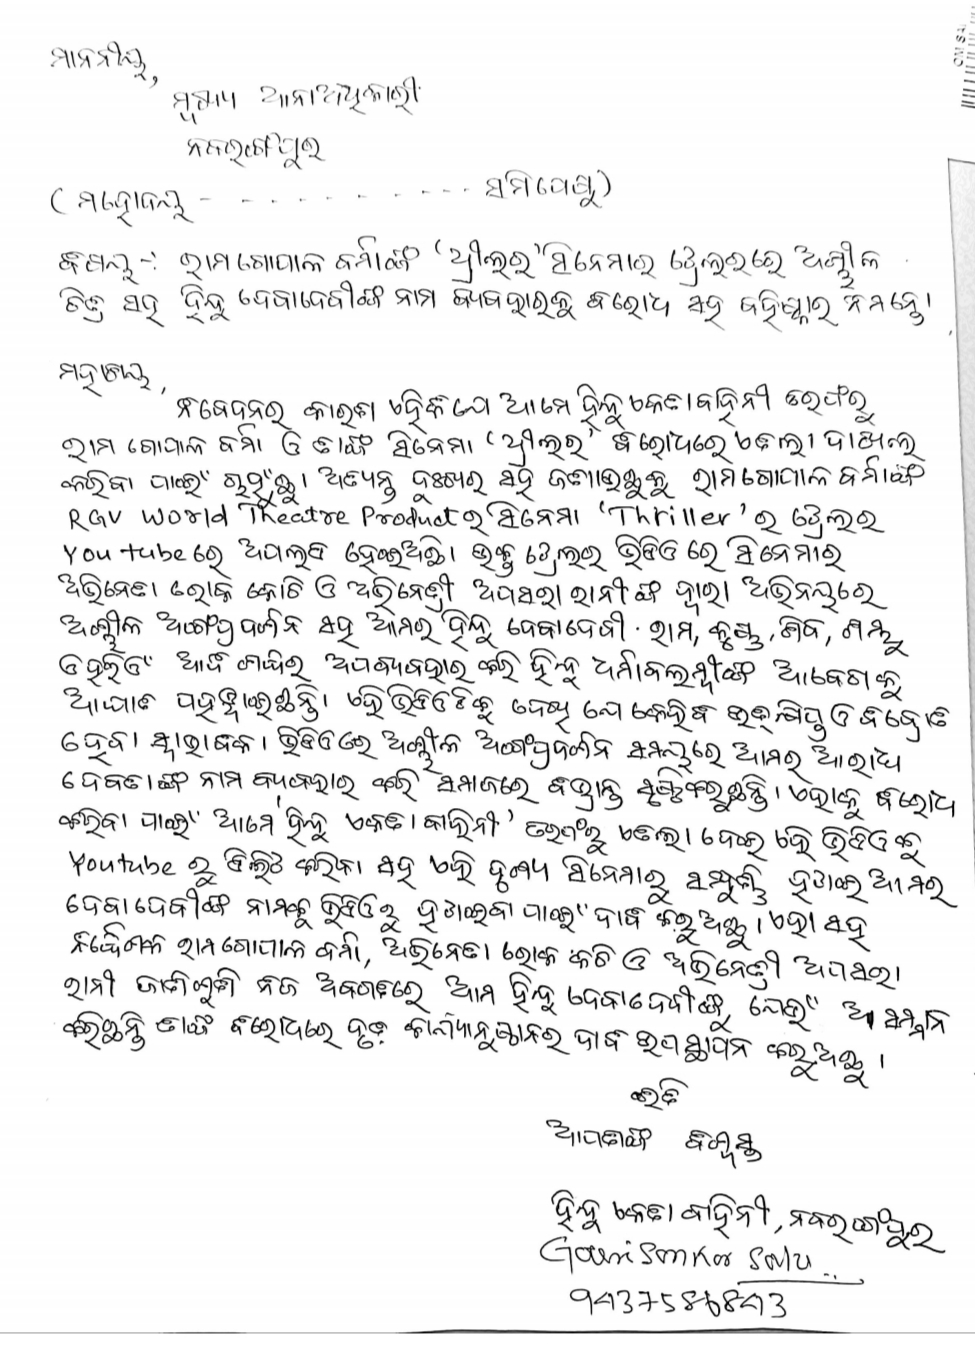 ମାନନୀୟ,
ମୁଖ୍ୟ ଥାନାଅଧିକାରୀ
ନବରଙ୍ଗପୁର
(ମହୋଦୟ - - - - - - - - - - - ସମିପେଷୁ)
ବିଷୟ -: ରାମଗୋପାଳ ବର୍ମାଙ୍କ 'ଥ୍ରୀଲର' ସିନେମାର ଟ୍ରେଲରରେ ଅଶ୍ଳୀଳ
ଚିତ୍ର ସହ ହିନ୍ଦୁ ଦେବାଦେବୀଙ୍କ ନାମ ବ୍ୟବହାରକୁ ବିରୋଧ ସହ ବହିଷ୍କାର ନିମନ୍ତେ।
ମହାଶୟ,
ନିବେଦନର କାରଣ ଏହିକି ଯେ ଆମେ ହିନ୍ଦୁ ଏକତା ବାହିନୀ ତରଫରୁ
ରାମ ଗୋପାଳ ବର୍ମା ଓ ତାଙ୍କ ସିନେମା 'ଥ୍ରୀଲର' ବିରୋଧରେ ଏତଲା ଦାଖଲ
କରିବା ପାଇଁ ଚାହୁଁଛୁ। ଅତ୍ୟନ୍ତ ଦୁଃଖର ସହ ଜଣାଉଛୁକୁ ରାମଗୋପାଳ ବର୍ମାଙ୍କ
RGV World Theatre Product ର ସିନେମା 'Thriller' ର ଟ୍ରେଲର
You tube ରେ ଅପଲବ୍ଧ ହେଇଅଛି। ଉକ୍ତ ଟ୍ରେଲର ଭିଡିଓ ରେ ସିନେମାର
ଅଭିନେତା ରୋକ କୋଚି ଓ ଅଭିନେତ୍ରୀ ଅପସରା ରାନୀଙ୍କ ଦ୍ୱାରା ଅଭିନୟରେ
ଅଶ୍ଳୀଳ ଅଙ୍ଗପ୍ରଦର୍ଶନ ସହ ଆମର ହିନ୍ଦୁ ଦେବାଦେବୀ . ରାମ, କୃଷ୍ଣ, ଶିବ,
ଆଦି ଅପବ୍ୟବହାର କରି ହିନ୍ଦୁ ଧର୍ମାବଲମ୍ବୀଙ୍କ ଆବେଗକୁ
ଆଘାତ ପହଞ୍ଚାଇଛନ୍ତି। ଏହି ଭିଡିଓଟିକୁ ଦେଖି ଯେ କେହିବି ଓ
ହେବା ସ୍ୱାଭାବିକ। ଭିଡିଓରେ ଅଶ୍ଳୀଳ ଅଙ୍ଗପ୍ରଦର୍ଶନ ସମୟରେ ଆମର ଆରାଧ୍ୟ
ଦେବତାଙ୍କ ନାମ ବ୍ୟବହାର କରି ସମାଜରେ ସୃଷ୍ଟି କରୁଛନ୍ତି। ଏହାକୁ ବିରୋଧ
କରିବା ପାଇଁ ଆମେ 'ହିନ୍ଦୁ ଏକତା ବାହିନୀ' ତରଫରୁ ଏତଲା ଦେଇ ଏହି ଭିଡିଓକୁ
Youtube ରୁ ଡିଲିଟ କରିବା ସହ ଏହି ଦୃଶ୍ୟ ସିନେମାରୁ ସମ୍ପୂର୍ଣ୍ଣ ହଟାଇ ଆମର
ଦେବାଦେବୀଙ୍କ ନାମକୁ ଭିଡିଓରୁ ହଟାଇବା ପାଇଁ ଦାବି କରୁଅଛୁ। ଏହା ସହ
ନିର୍ଦ୍ଦେଶକ ରାମଗୋପାଳ ବର୍ମା, ଅଭିନେତା ରୋକ କଚି ଓ ଅଭିନେତ୍ରୀ ଅପସରା
ରାନୀ ଜାଣିଶୁଣି ନିଜ ଆମ ହିନ୍ଦୁ ଦେବାଦେବୀଙ୍କୁ ଯେଉଁ ଅସମ୍ମାନ
କରିଛନ୍ତି ତାଙ୍କ ବିରୋଧରେ ଦୃଢ଼ କାର୍ଯ୍ୟାନୁଷ୍ଠାନର ଦାବି ଉପସ୍ଥାପନ କରୁଅଛୁ।
ଇତି
ଆପଣଙ୍କ ବିଶ୍ୱସ୍ତ
ହିନ୍ଦୁ ଏକତା ବାହିନୀ, ନବରଙ୍ଗପୁର
9437586843